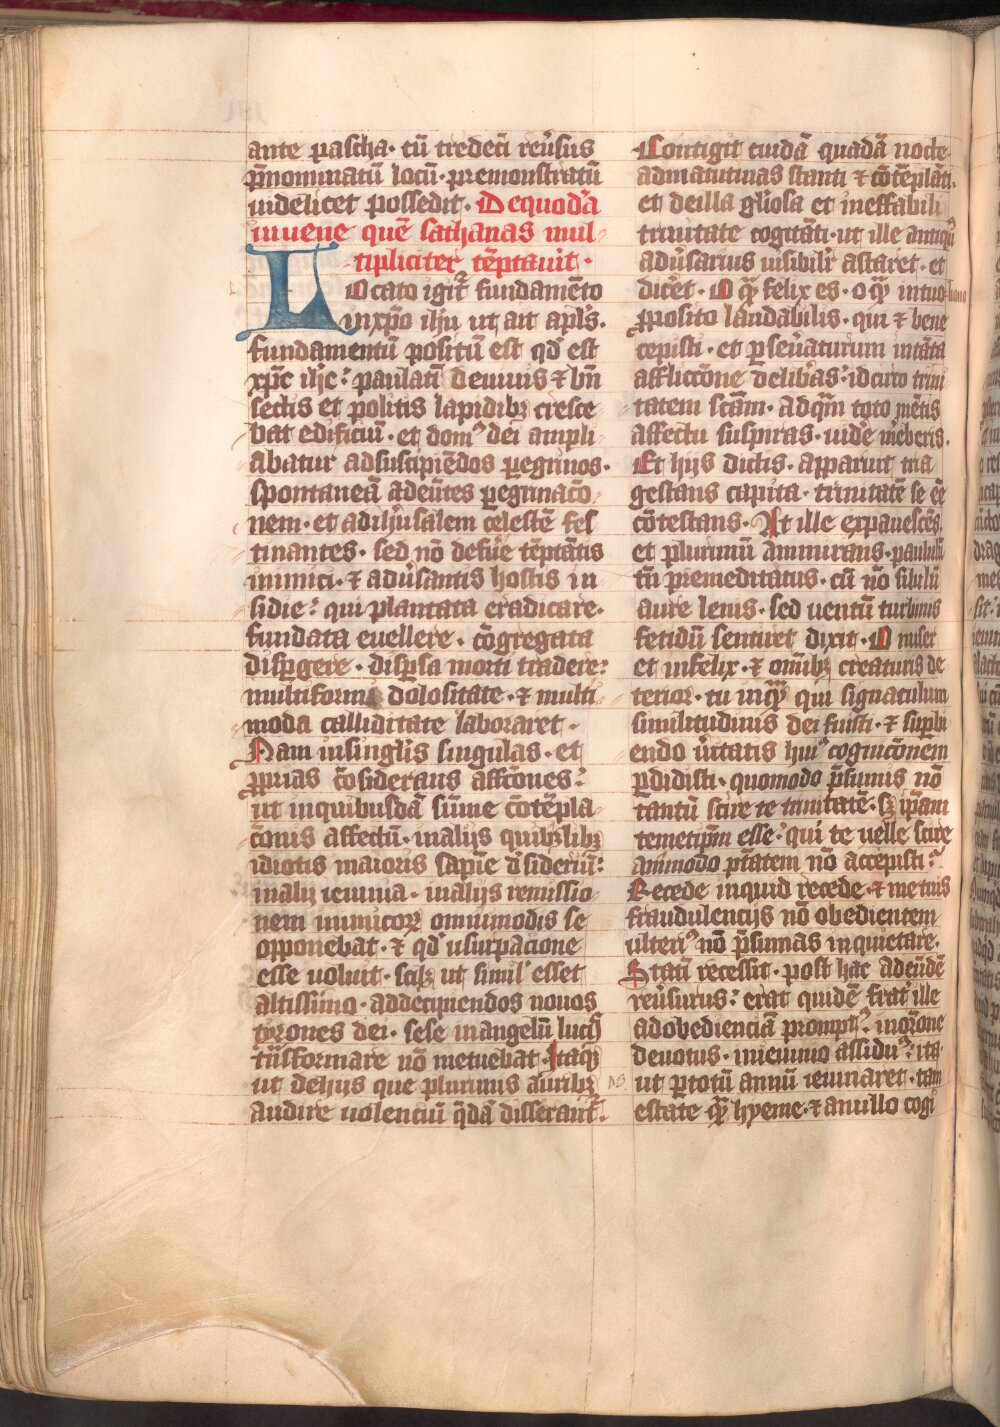 ante pascha · cū tredecī reũsus
p̃nominatū locū · premonstratū
uidelicet possedit · De quodā
iuuene quē sathanas mul-
tipliciter tēptauit ·
Locato igit᷑ fundamēto
in xp̄o ih̄u ut ait apl̄s ·
fundamentū positū est qd̓ est
xp̄c ih̄c : paulatī de uiuis ⁊ bn̄
sectis et politis lapidibꝫ cresce-
bat edificiū · et domꝰ dei ampli-
abatur ad suscipiēdos p̲egrinos ·
spontaneā adeūtes p̲egrinacō-
nem · et ad ih̄rusalem celestē fes-
tinantes · sed nō defūe tēptātis
inimici · ⁊ adũsantis hostis in-
sidie : qui plantata eradicare ·
fundata euellere · cōgregata
disp̲gere · disp̲sa morti tradere :
multiformi dolositate · ⁊ multi-
moda calliditate laboraret ·
Nam in singlis̄ singulas · et
ꝓprias cōsiderans affcōnes :
ut in quibusdā sūme cōtēpla-
cōnis affectū · in alijs quibꝫlibꝫ
idiotis maioris sapīe d̓sideriū :
in alijs ieiunia · in alijs remissio-
nem inimicoꝝ omnimodis se
opponebat · ⁊ qd̓ usurpacione
esse uoluit · sciłꝫ ut simił esset
altissimo · ad decipiendos nouos
tyrones dei · sese in angelū lucis
tñsformare nō metuebat · Itaqꝫ
ut de hijs que plurimis auribꝫ
audire uolentiū q̄dā disserant᷑ :
Contigit cuidā quadā nocte
ad matutinas stanti ⁊ cōtēplāti ·
et de illa gl̄iosa et ineffabili
trinitate cogitāti · ut ille antiqꝰ
adũsarius uisibilit̓ astaret · et
dicēt · O qꝫ̄ felix es · o qꝫ̄ in tuo bono
ꝓposito laudabilis · qui ⁊ bene
cepisti · et p̲seũaturum in tāta
afflictōne delibãs : idcirco trini-
tatem scām · ad qm̄ toto mētis
affectu suspiras · uidē m̓eberis ·
Et hijs dictis · apparuit tria
gestans capita · trinitatē se eē̄
cōtestans · At ille expauescēs ·
et plurimū ammirans · paulułū
tn̄ premeditatus · cū nō sibilū
aure lenis · sed uentū turbinis
fetidū sentiret dixit · O miser
et infelix · ⁊ omībꝫ creaturis de-
terior · tu inqꝫ̄ qui signaculum
similitudinis dei fuisti · ⁊ sup̲bi-
endo ũitatis huiꝰ cognicōnem
p̲didisti · quomodo p̄sumis nō
tantū scire te trinitatē · sꝫ ip̄am
temetip̄m esse · qui te uelle scire
ammodo p̄tatem nō accepisti :
Recede inquid recede · ⁊ me tuis
fraudulencijs nō obedientem
ulteriꝰ nō p̄sumas inquietare ·
Statī recessit · post hac adeūdē
reũsurus : erat quidē frat̓ ille
ad obedienciā promptꝰ · in orōne
deuotus · in ieiunio assiduꝰ : ita
ut p̲ totū annū ieiunaret · tam
estate qꝫ̄ hyeme · ⁊ a nullo cogi